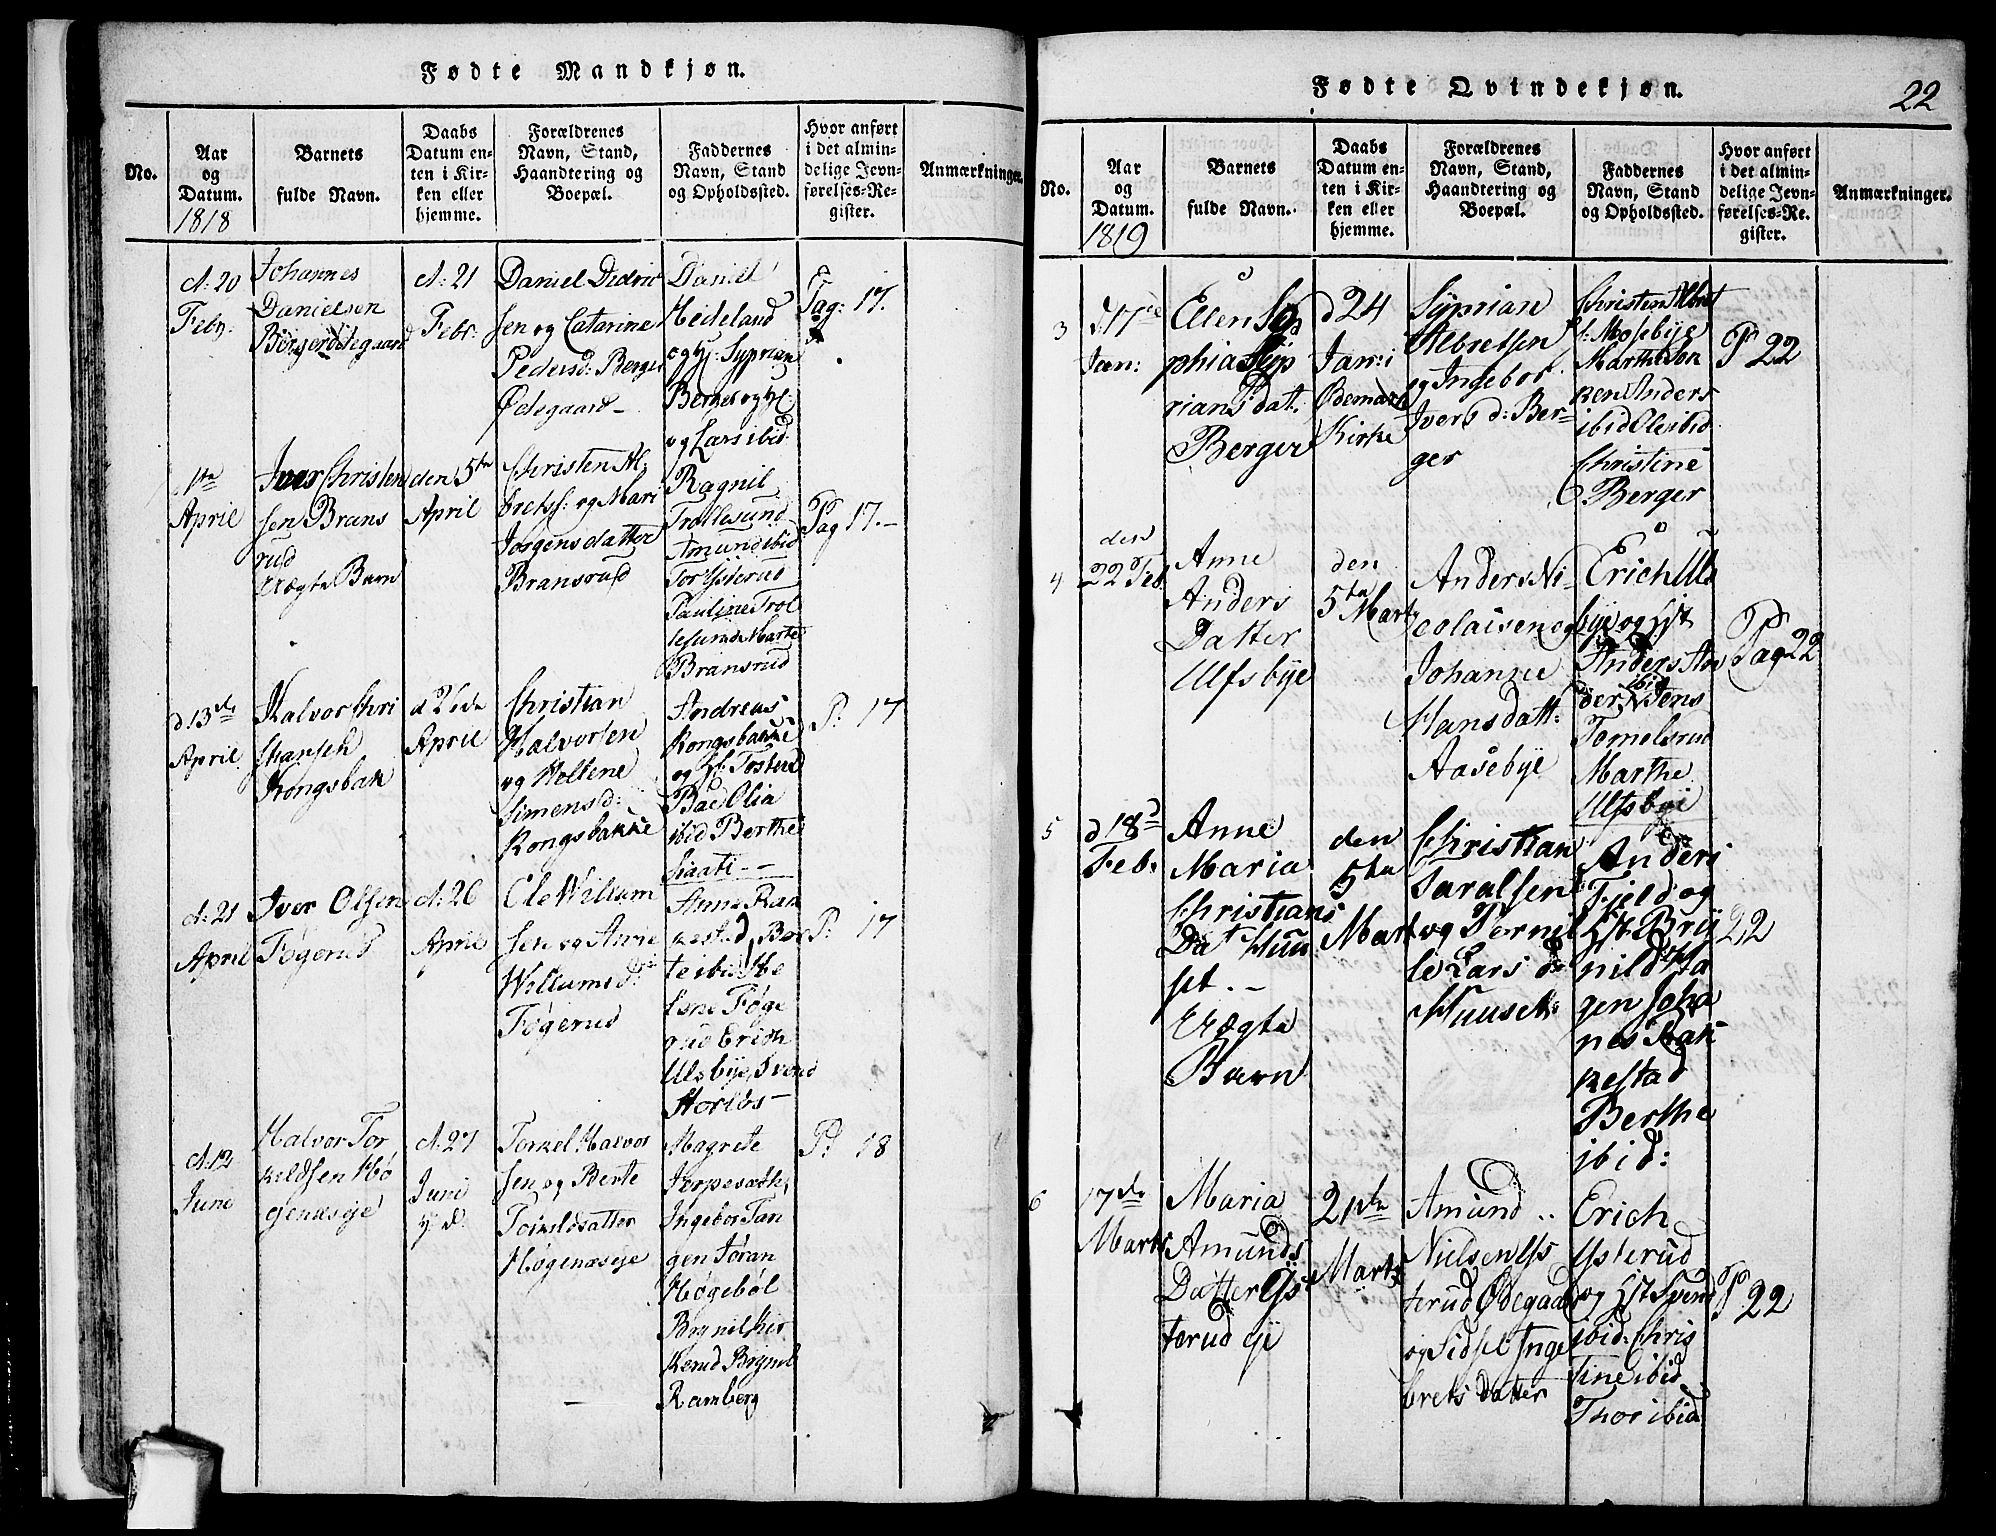 Fødte Mandkjøn.
No.
Aar
og
Datum.
1818
Barnets
fulde Navn.
Daabs
Datum en-
ten i Kir-
ken eller
hjemme.
Forældrenes
Navn, Stand,
Haandtering og
Boepæl.
Faddernes
Navn, Stand
og Opholdssted.
Hvor anført
i det almin-
delige Jevn-
førelses-Re-
gister.
Anmærkninger.
d: 20
Feb:
Johannes
Danielsen
d: 21
Febr:
Daniel Didric
sen og Catarine
Pedersd: Berger
Ødegaard
Daniel
Hedeland
og H: Syprian
Berger og H:
og Lars ibid.
Pag: 17.
1te
April
Iver Christen
sen Brans
rud
Uægte Barn
den 5te
April
Christen Al
bretss: og Mari
Jørgensdatter
Bransrud
Ragnil
Trollesund
Amund ibid
Tor Ysterud
Pauline Trol
lesund Marte
Bransrud
Pag 17.-
d. 13de
April
Halvor Chri
stiansen
Kongsbak
d. 26de
April
Christian
Halvorsen
og Heltene
Simensd:
Kongsbakke
Andreas
Kongsbakke
og H: Tosten
Bae Olia
ibid Berthe
P: 17
d: 21
April
Iver Olsen
Føgerud
d: 26
April
Ole Willum
sen og Anne
Willumsd:
Føgerud
Anne Ran
kestad, Ber
te ibid He
lene Føge
rud Erich
Ulsbye, Svend
Horlbs-
P: 17
d: 12
Juni
Halvor Tor
kildsen Hø
genæseje
d: 27
Juni
Torkel Halvor
sen og Berte
Torkildsdatter
Høgenæseje
Magrete
Jerpesæth,
Ingebor Tan
gen Jøran
Høgebøl
Brynil Kir
kerud Brynil
Ramberg
P: 18
Fødte Qvindekjøn.
22
No.
Aar
og
Datum.
1819
Barnets
fulde Navn.
Daabs
Datum en-
ten i Kir-
ken eller
hjemme.
Forældrenes
Navn, Stand,
Haandtering og
Boepæl.
Faddernes
Navn, Stand
og Opholdssted.
Hvor anført
i det almin-
delige Jevn-
førelses-Re-
gister.
Anmærkninger.
3
d 17de
Jan:
Ellen So
phia Syp
rians dat.
Berger
d 24
Jan: i
Ødemark
Kirke
Syprian
Albretsen
og Ingebor
Ivers d: Ber-
ger
Christen Albret
s: Mosebye
Marthe Son
ken Anders
ibid Ole ibid
Christine
Berger
P 22
4
den
22 Feb
Anne
Anders
Datter
Ulfsbye
den
5te Marts
Anders Ni-
colaisen og
Johanne
Hans datt:
Aasebye
Erich Uls
bye og Hst
Anders An
der ibid Jens
Tomelsrud
Marthe
Ulfsbyi
Pag 22
5
d 18d
Feb:
Anne
Maria
Christians
Dat Huu
set. -
Uægte
Barn
den
5te
Mart
Christian
Taralsen
og Pernil
le Lars d
Huuset
Anders
Fjeld og
Hst Bry
nild Ha
gen Joha
nes Ran
kestad
Berthe
ibid:
22
6
17de
Marts
Maria
Amunds
Datter Ys
terud eje
21de
Marts
Amund ..
Nielsen Ys
terud Ødegaar
og Sidsel Inge
brets Datter
Erich
Ysterud
og Hst Svend
ibid: Chris
tine ibid
Thor ibid
P 22